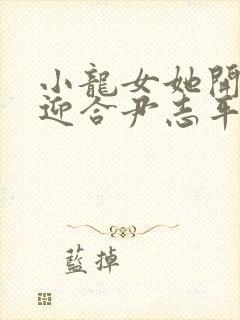 小龍女她開
迎合尹志平
藍掉